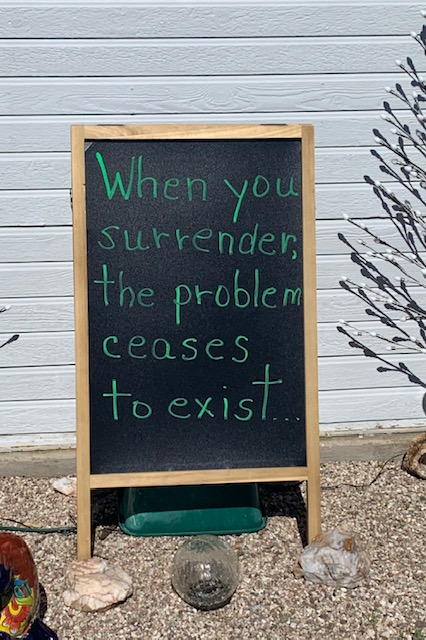 When you
surrender,
the problem
ceases
to exist...